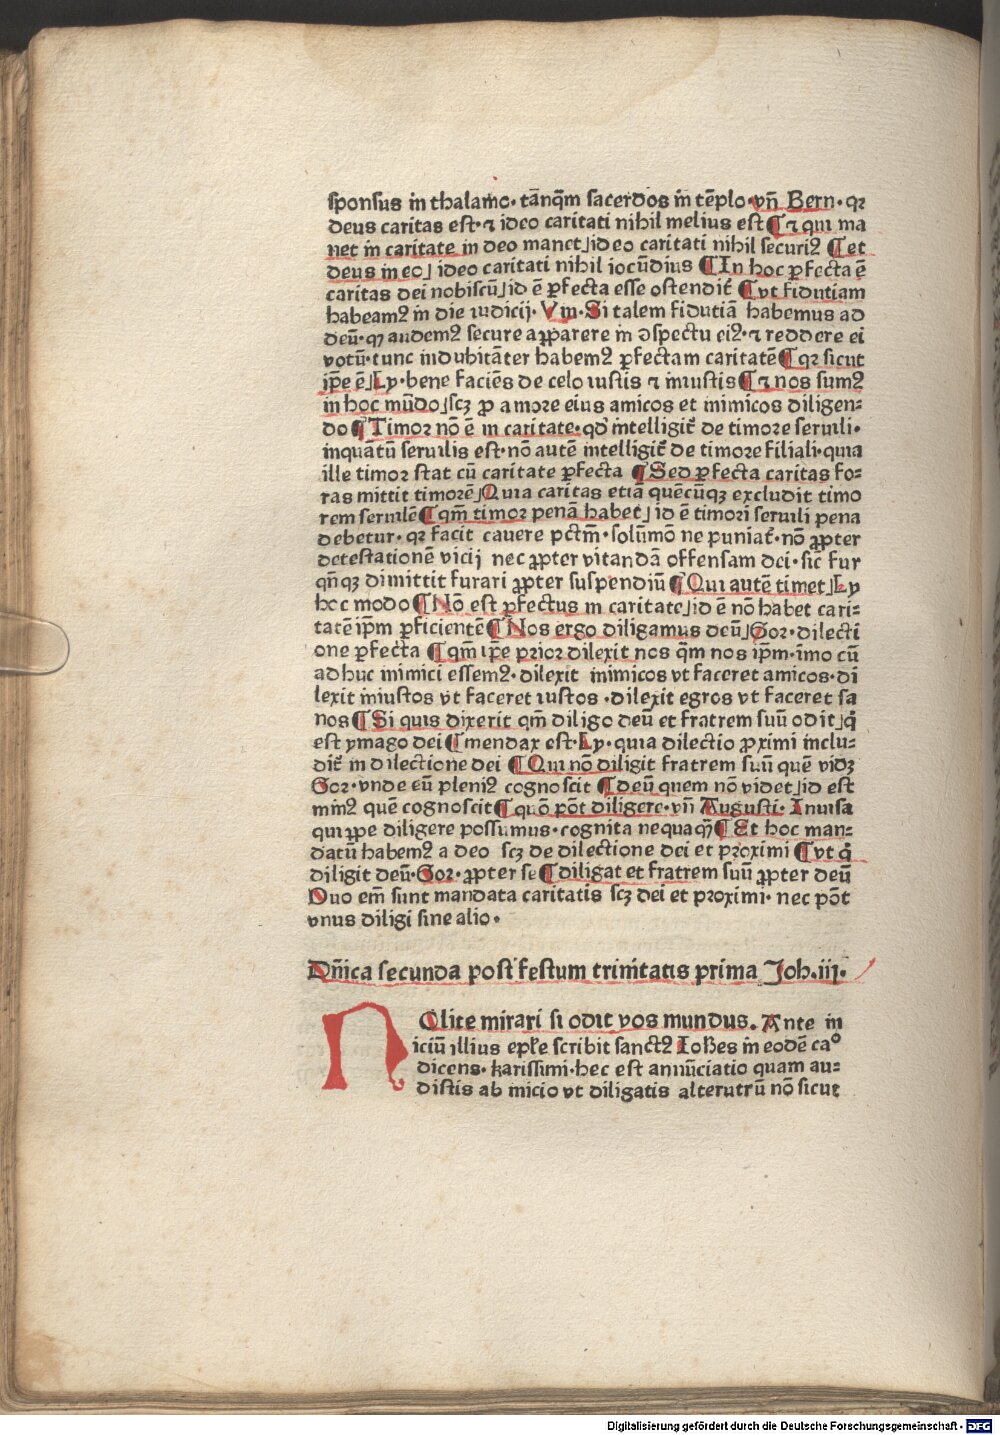 sponsus in thalamo· tanq̄m sacerdos in tēplo· vn̄ Bern· qꝛ
deus caritas est· ⁊ ideo caritati nihil melius est ¶ ⁊ qui ma
net in caritate in deo manet ideo caritati nihil securiꝰ ¶ et
deus in eo ideo caritati nihil iocūdius ¶ In hoc ꝑfecta ē
caritas dei nobiscū id ē ꝑfecta esse ostendit̄ ¶ vt fidutiam
habeamꝰ in die iudicij· Vin· Si talem fidutiā habemus ad
deū· qꝫ audemꝰ secure aꝑparere in ɔspectu eiꝰ· ⁊ reddere ei
votū· tunc indubitāter habemꝰ ꝑfectam caritatē ¶ qꝛ sicut
ip̄e ē Ly· bene faciēs de celo iustis ⁊ iniustis ¶ ⁊ nos sumꝰ
in hoc mūdo scꝫ ꝓ amore eius amicos et inimicos diligen-
do ¶ Timor nō ē in caritate· qd̓ intelligit̄ de timore seruili·
inquantū seruilis est· nō autē intelligit̄ de timore filiali· quia
ille timor stat cū caritate ꝑfecta ¶ Sed ꝑfecta caritas fo-
ras mittit timorē Quia caritas etiā quēcūqꝫ excludit timo
rem seruilē ¶ qm̄ timor penā habet id ē timori seruili pena
debetur· qꝛ facit cauere pctm̄· solūmō ne puniat̄· nō ꝓpter
detestationē vicij nec ꝓpter vitandā offensam dei· sic̄ fur
qn̄qꝫ dimittit furari ꝓpter suspendiū ¶ Qui autē timet Ly
hoc modo ¶ Nō est ꝑfectus in caritate id ē nō habet cari-
tatē ip̄m ꝑficientē ¶ Nos ergo diligamus deū Gor· dilecti
one ꝑfecta ¶ qm̄ ip̄e prior dilexit nos q̄m nos ip̄m· īmo cū
adhuc inimici essemꝰ· dilexit inimicos vt faceret amicos· di
lexit iniustos vt faceret iustos· dilexit egros vt faceret sa
nos ¶ Si quis dixerit qm̄ diligo deū et fratrem suū odit q̓
est ymago dei ¶ mendax est· Ly· quia dilectio ꝓximi inclu-
dit̄ in dilectione dei ¶ Qui nō diligit fratrem suū quē vidꝫ
Gor· vnde eū pleniꝰ cognoscit ¶ deū quem nō videt id est
minꝰ quē cognoscit ¶ quō pōt diligere· vn̄ Augusti· Inuisa
quiꝓpe diligere possumus· cognita nequaq̄ ¶ Et hoc man-
datū habemꝰ a deo scꝫ de dilectione dei et proximi ¶ vt q̓
diligit deū· Gor· ꝓpter se ¶ diligat et fratrem suū ꝓpter deū
Duo em̄ sunt mandata caritatis scꝫ dei et proximi· nec pōt
vnus diligi sine alio·
Dn̄ica secunda post festum trinitatis prima Joh.iij.
NOlite mirari si odit vos mundus. Ante in
iciū illius ep̄le scribit sanctꝰ Ioh̄es in eodē caº
dicens· karissimi· hec est annūciatio quam au-
distis ab inicio vt diligatis alterutrū nō sicut
Digitalisierung gefördert durch die Deutsche Forschungsgemeinschaft - DFG